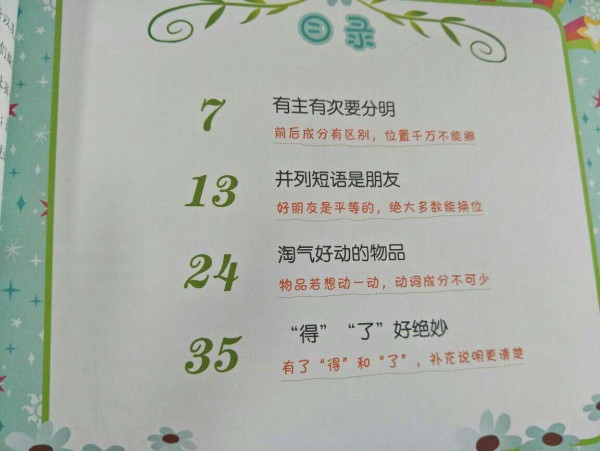 目录
7 有主有次要分明
前后成分有区别，位置千万不能挪
13 并列短语是朋友
好朋友是平等的，绝大多数能换位
24 淘气好动的物品
物品若想动一动，动词成分不可少
35 “得”“了”好绝妙
有了“得”和“了”，补充说明更清楚